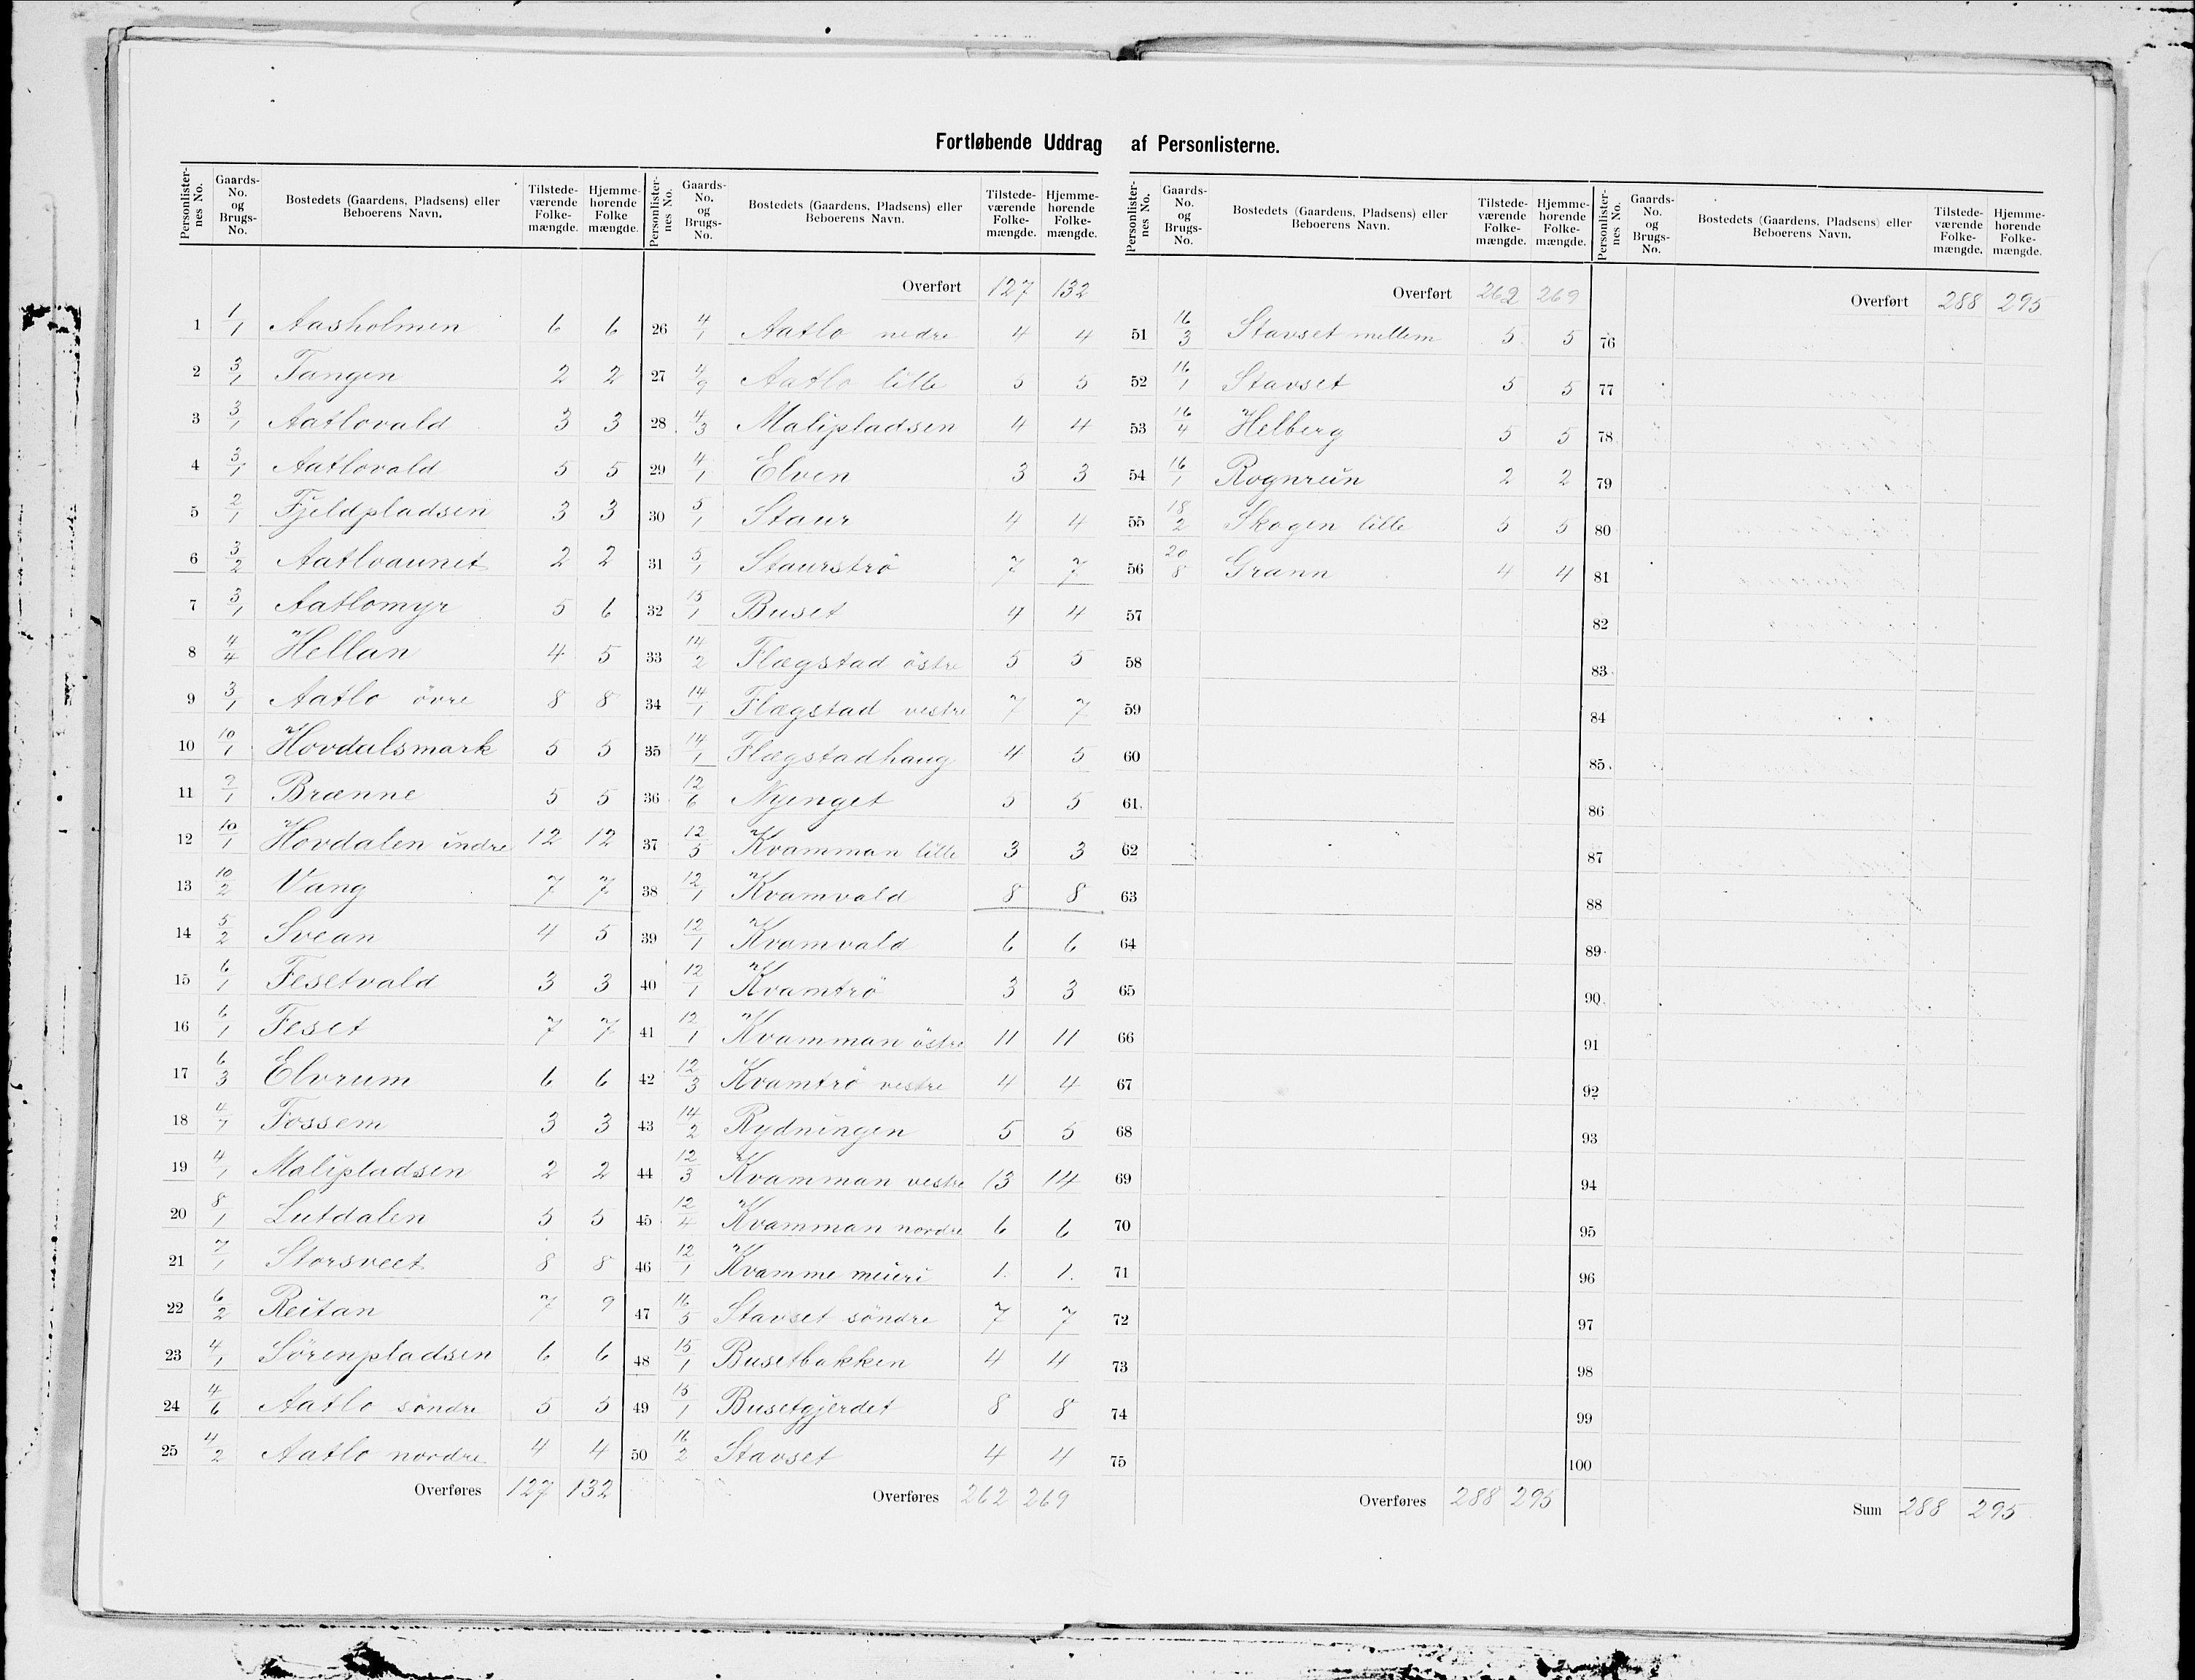 Fortløbende Uddrag af Personlisterne.
Personlister-nes No. Gaards-No. og Brugs-No. Bostedets (Gaardens, Pladsens) eller Beboerens Navn. Tilstede-værende Folke-mængde. Hjemme-hørende Folke mængde.
1 1/1 Aasholmen 6 6
2 3/1 Tangen 2 2
3 3/1 Aatlovald 3 3
4 3/1 Aatlovald 5 5
5 2/1 Fjeldpladsen 3 3
6 3/2 Aatloaunet 2 2
7 3/1 Aatlomyr 5 6
8 4/4 Hellan 4 5
9 3/1 Aatlo övre 8 8
10 10/1 Hovdalsmark 5 5
11 7/1 Brænne 5 5
12 10/1 Hovdalen indre 12 12
13 10/2 Vang 7 7
14 5/2 Svean 4 5
15 6/1 Fesetvald 3 3
16 6/1 Feset 7 7
17 6/3 Elvrum 6 6
18 4/7 Fossem 3 3
19 4/1 Malipladsen 2 2
20 8/1 Lutdalen 5 5
21 7/1 Storsveet 8 8
22 6/2 Reitan 7 9
23 4/1 Sörenpladsen 6 6
24 4/6 Aatlo söndre 5 5
25 4/2 Aatlo nordre 4 4
Overføres 127 132
Personlister-nes No. Gaards-No. og Brugs-No. Bostedets (Gaardens, Pladsens) eller Beboerens Navn. Tilstede-værende Folke-mængde. Hjemme-hørende Folke-mængde.
Overført 127 132
26 4/1 Aatlo nedre 4 4
27 4/9 Aatlo lille 5 5
28 4/3 Malipladsen 4 4
29 4/1 Elven 3 3
30 5/1 Staur 4 4
31 5/1 Staurströ 7 7
32 15/1 Buset 4 4
33 14/2 Flægstad östre 5 5
34 14/1 Flægstad vestre 7 7
35 14/1 Flægstadhaug 4 5
36 12/6 Nyenget 5 5
37 12/5 Kvamman lille 3 3
38 12/1 Kvamvald 8 8
39 12/1 Kvamvald 6 6
40 12/1 Kvamtrö 3 3
41 12/1 Kvamman östre 11 11
42 12/3 Kvamtrö vestre 4 4
43 14/2 Rydningen 5 5
44 12/3 Kvamman vestre 13 14
45 12/4 Kvamman nordre 6 6
46 12/1 Kvamme meieri 1. 1.
47 16/5 Stavset söndre 7 7
48 15/1 Busetbakken 4 4
49 15/1 Busetgjerdet 8 8
50 16/2 Stavset 4 4
Overføres 262 269
Personlister-nes No. Gaards-No. og Brugs-No. Bostedets (Gaardens, Pladsens) eller Beboerens Navn. Tilstede-værende Folke-mængde. Hjemme-hørende Folke-mængde.
Overført 262 269
51 16/3 Stavset mellem 5 5
52 16/1 Stavset 5 5
53 16/4 Helberg 5 5
54 16/1 Rognrein 2 2
55 18/2 Skogen lille 5 5
56 20/8 Grann 4 4
57
58
59
60
61
62
63
64
65
66
67
68
69
70
71
72
73
74
75
Overføres 288 295
Personlister-nes No. Gaards-No. og Brugs-No. Bostedets (Gaardens, Pladsens) eller Beboerens Navn. Tilstede-værende Folke-mængde. Hjemme-hørende Folke-mængde.
Overført 288 295
76
77
78
79
80
81
82
83
84
85
86
87
88
89
90
91
92
93
94
95
96
97
98
99
100
Sum 288 295